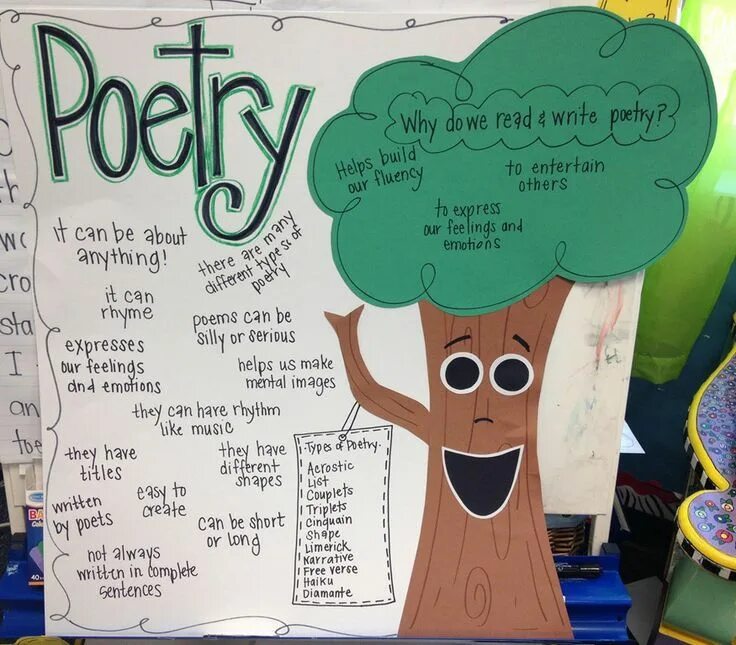 Poetry
Why do we read & write poetry?
Helps build
our fluency
to entertain
others
to express
our feelings and
emotions
it can be about
anything!
there are many
different types of
poetry
it can
rhyme
poems can be
silly or serious
expresses
our feelings
and emotions
helps us make
mental images
they can have rhythm
like music
they have
titles
they have
different
shapes
written
by poets
easy to
create
can be short
or long
not always
written in complete
sentences
·Types of Poetry·
Acrostic
List
Couplets
Triplets
Cinquain
Shape
Limerick
Narrative
Free Verse
Haiku
Diamante
cro
sta
I
an